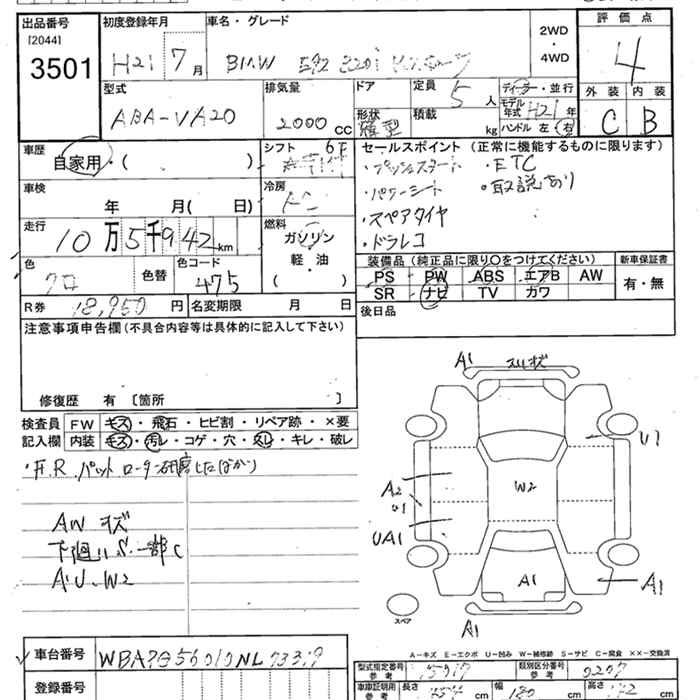 出品番号 初度登録年月 車名・グレード 2WD・4WD 評価点
[2044]
3501 H21 7月 BMW 320i 4
外装 内装
C B
型式 排気量 ドア 定員 ディーラー・並行
ABA-VA20 2000cc 形状 積載 5人 モデル年式 H21年
kg ハンドル 左 右
車歴 シフト 6F セールスポイント (正常に機能するものに限ります)
自家用・( )
・プッシュスタート ・ETC
・パワーシート ・取説あり
・スペアタイヤ
・ドラレコ
車検 冷房
年 月( 日)
走行 燃料
10万5千942km ガソリン
軽・油
( )
色 色替 色コード
クロ 475
装備品 (純正品に限り○をつけてください) 新車保証書
PS PW ABS エアB AW 有・無
SR ナビ TV カワ
R券 18,950円 名変期限 月 日
後日品
注意事項申告欄(不具合内容等は具体的に記入して下さい)
修復歴 有 [箇所 ]
検査員 FW キズ・飛石・ヒビ割・リペア跡・×要
記入欄 内装 キズ・汚レ・コゲ・穴・スレ・キレ・破レ
・F.R.パット ローター研磨したばかり
AW キズ
下廻りS.一部C
A.U.W2
A1 スリキズ
U1
A2
U1
W2
UA1
A1
A1
A1
スペア
A-キズ E-エクボ U-凹み W-補修跡 S-サビ C-腐食 ××-交換済
車台番号 WBA
登録番号
型式指定番号 参考 類別区分番号 参考
車車証明用 参考 長さ cm 幅 180 cm 高さ cm